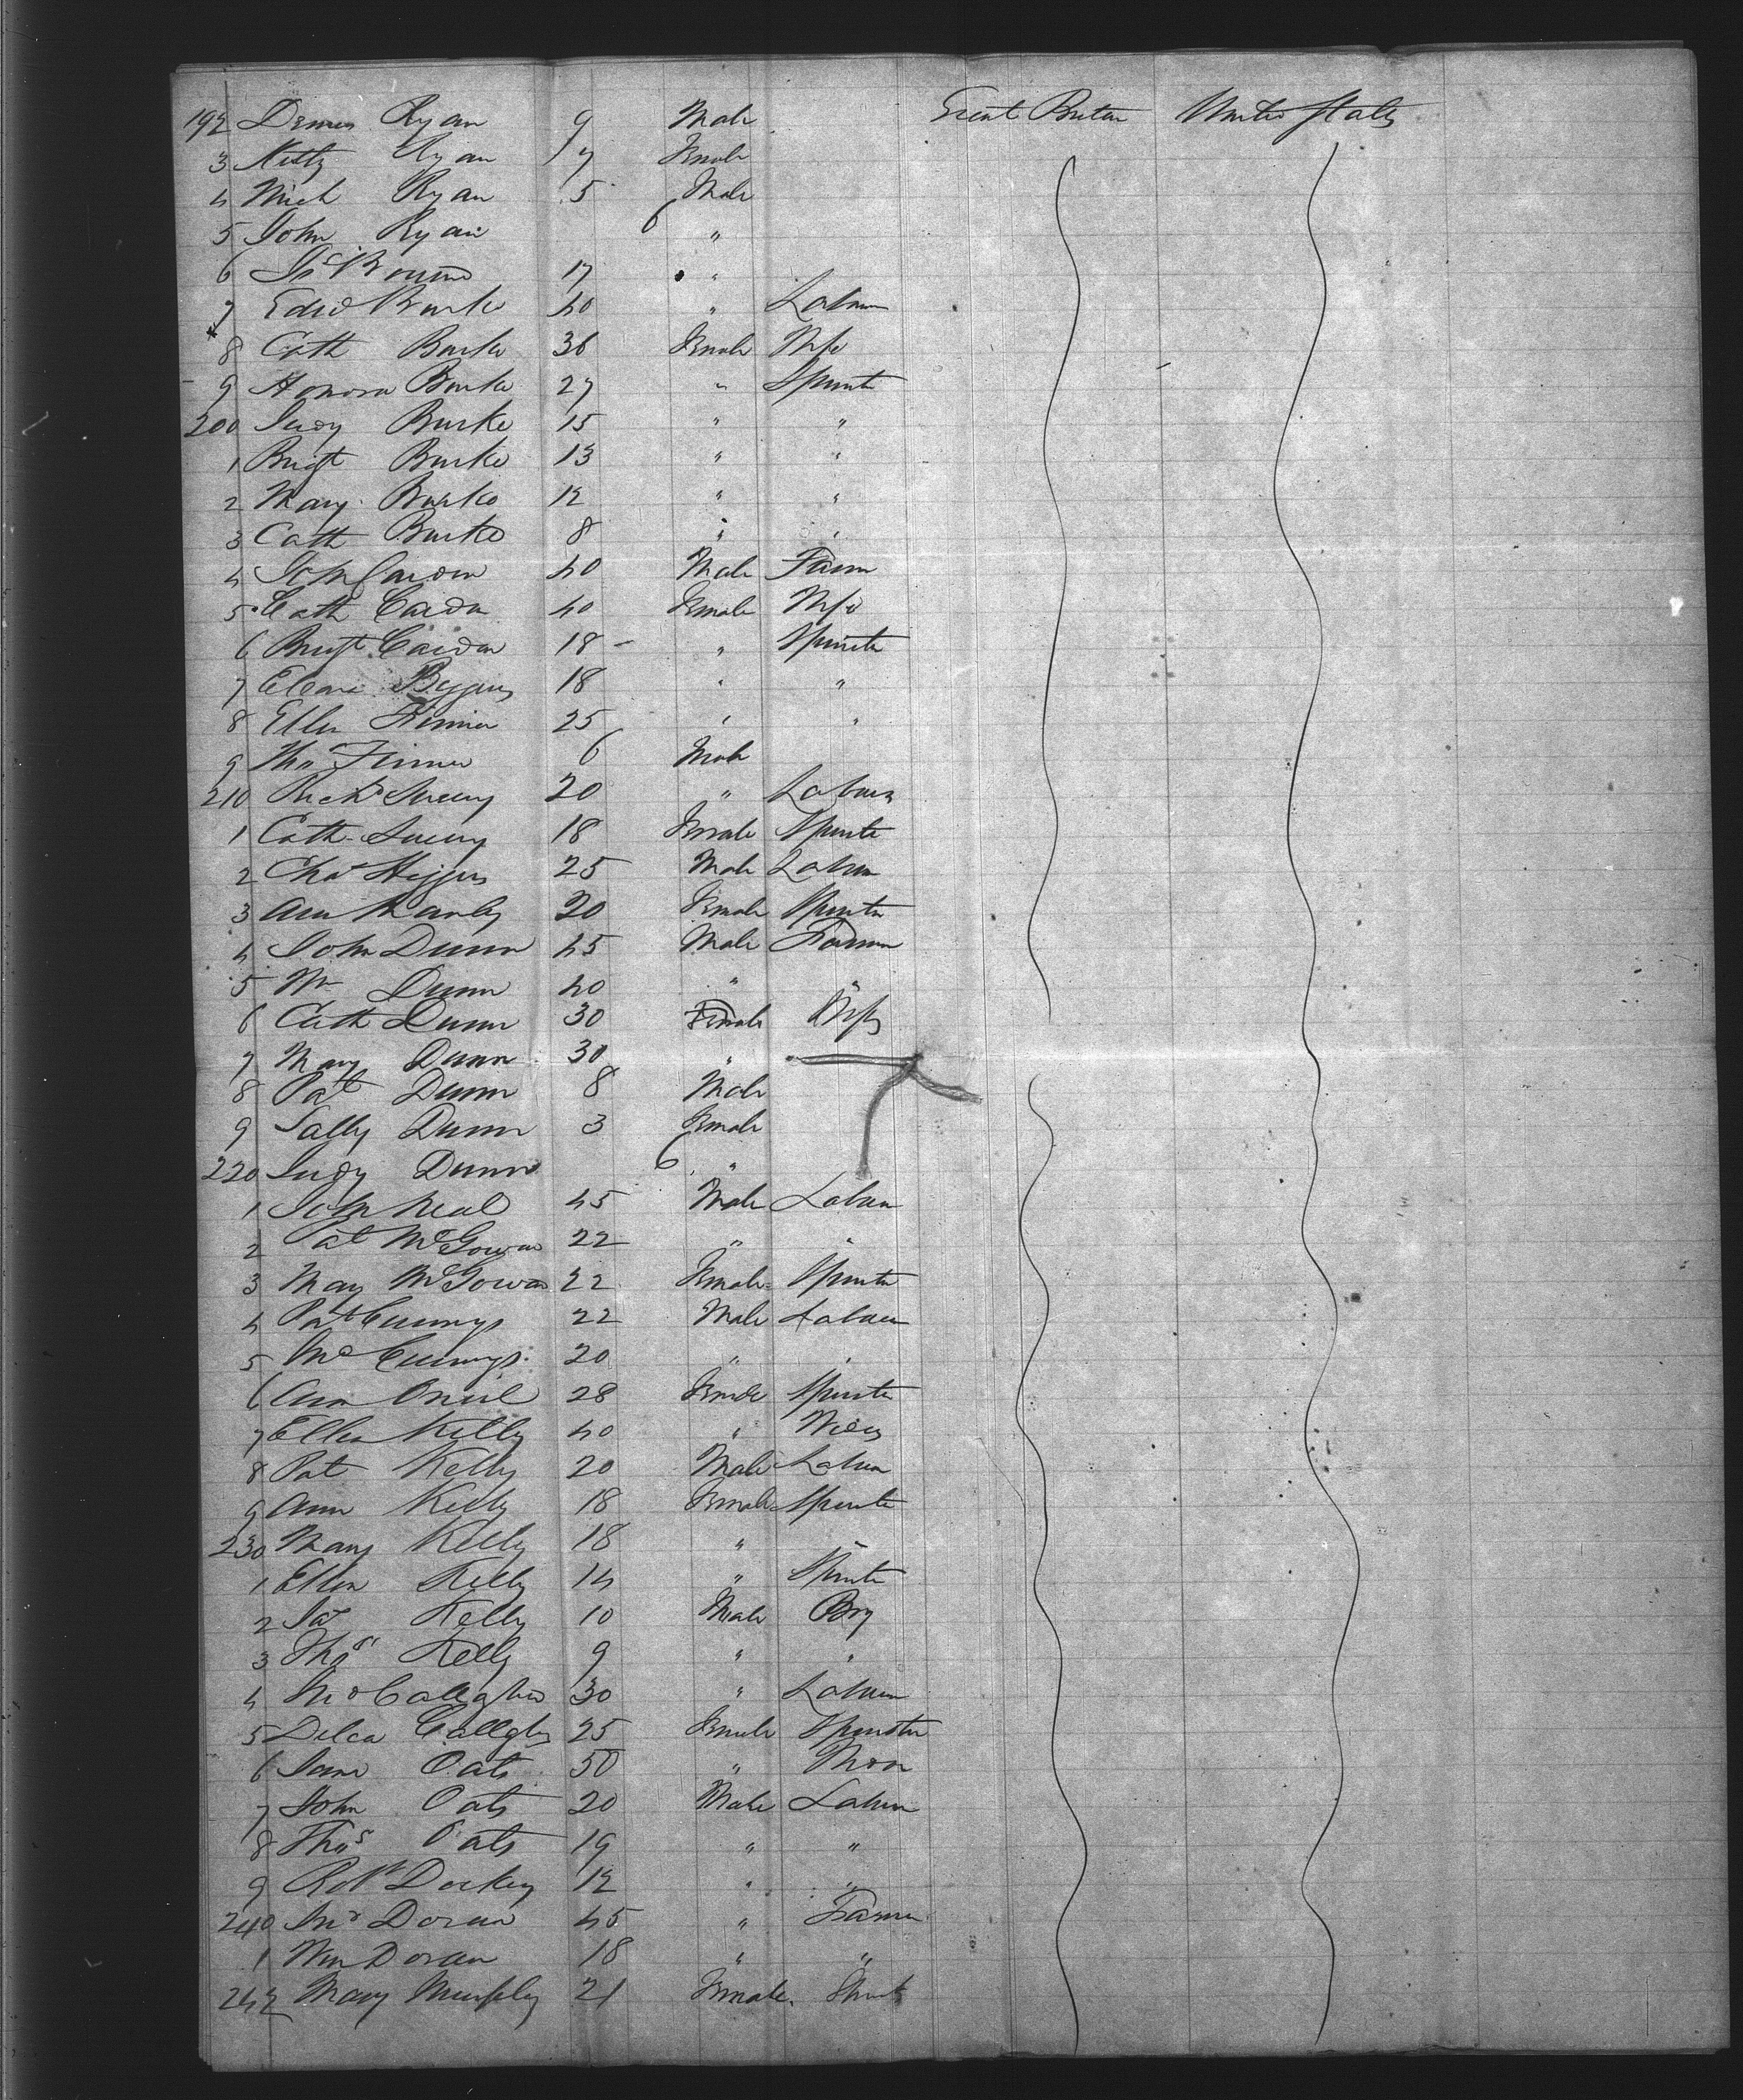 192 Dennis Ryan 9 Male Great Britain United States
3 Kitty Ryan 7 Female
4 Mich Ryan 5 Male
5 John Ryan 6 "
6 17 "
7 Edwd Burke 40 " Labour
8 Cath Burke 36 Female Wife
9 Honora Burke 27 " Spinster
200 Judy Burke 15 " "
1 Bridt Burke 13 " "
2 Mary Burke 12 " "
3 Cath Burke 8 " "
4 John Carden 40 Male Farm
5 Cath Carden 40 Female Wife
6 Bridt Carden 18 " Spinster
7 18 " "
8 Ellen 25 " "
9 Thos 6 Male
210 Richd Sweeny 20 " Labour
1 Cath Sweeny 18 Female Spinster
2 Chas Higgins 25 Male Labour
3 Ann Manly 20 Female Spinster
4 John Dunn 45 Male Farmer
5 Wm Dunn 40 " "
6 Cath Dunn 30 Female Wife
7 Mary Dunn 30 "
8 Pat Dunn 8 Male
9 Sally Dunn 3 Female
220 Judy Dunn 6 "
1 John Neal 45 Male Labour
2 Pat McGowan 22 " "
3 Mary McGowan 22 Female Spinster
4 Pat Cumngs 22 Male Labour
5 Cumngs 20 " "
6 Ann Oneil 28 Female Spinster
7 Ellen Kelly 40 "
8 Pat Kelly 20 Male Labour
9 Ann Kelly 18 Female Spinster
230 Mary Kelly 18 " "
1 Ellen Kelly 14 " Spinster
2 Jas Kelly 10 Male Boy
3 Thos Kelly 9 " "
4 30 " Labour
5 Delea 25 Female Spinster
6 Jane Oats 50 "
7 John Oats 20 Male Labour
8 Thos Oats 19 " "
9 Robt Dorkey 12 " "
240 Doran 45 " Farmer
1 Wm Doran 18 " "
242 Mary Murphy 21 Female